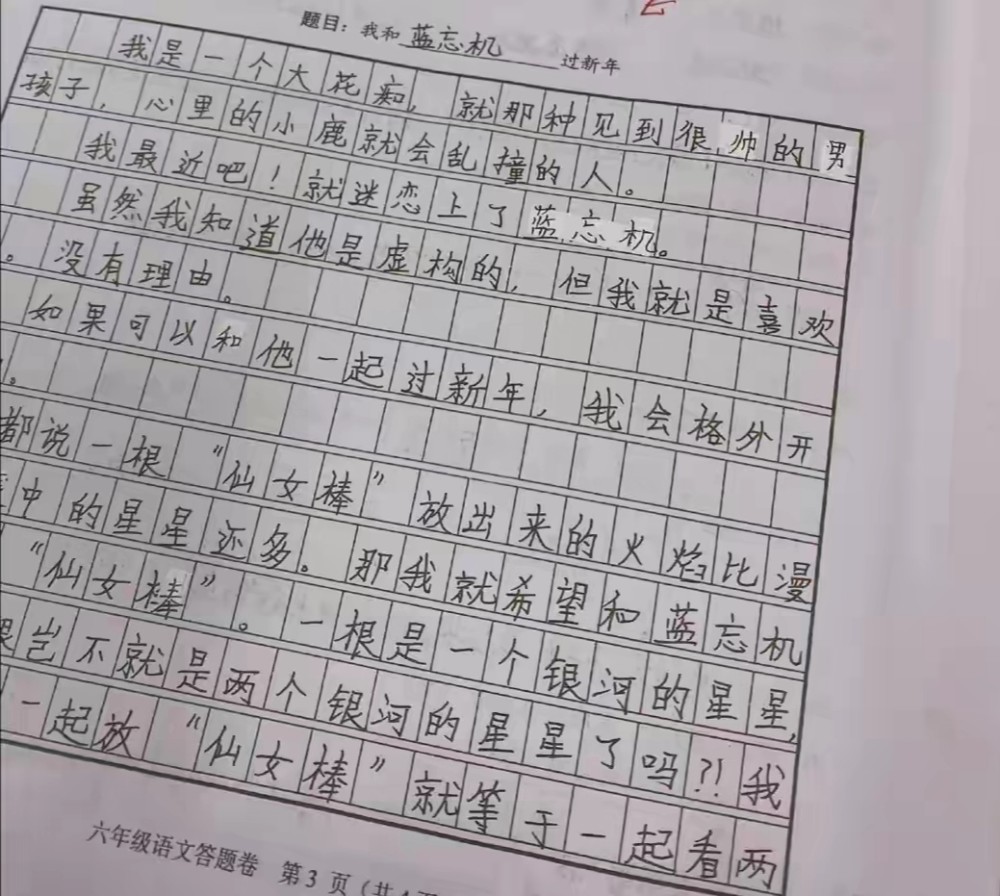 题目：我和蓝忘机过新年
我是一个大花痴，就那种见到很帅的男
孩子，心里的小鹿就会乱撞的人。
我最近吧！就迷恋上了蓝忘机。
虽然我知道他是虚构的，但我就是喜欢
。没有理由。
如果可以和他一起过新年，我会格外开
。
都说一根“仙女棒”放出来的火焰比漫
中的星星还多。那我就希望和蓝忘机
“仙女棒”。一根是一个银河的星星，
岂不就是两个银河的星星了吗？！我
一起放“仙女棒”就等于一起看两
六年级语文答题卷 第3页（共